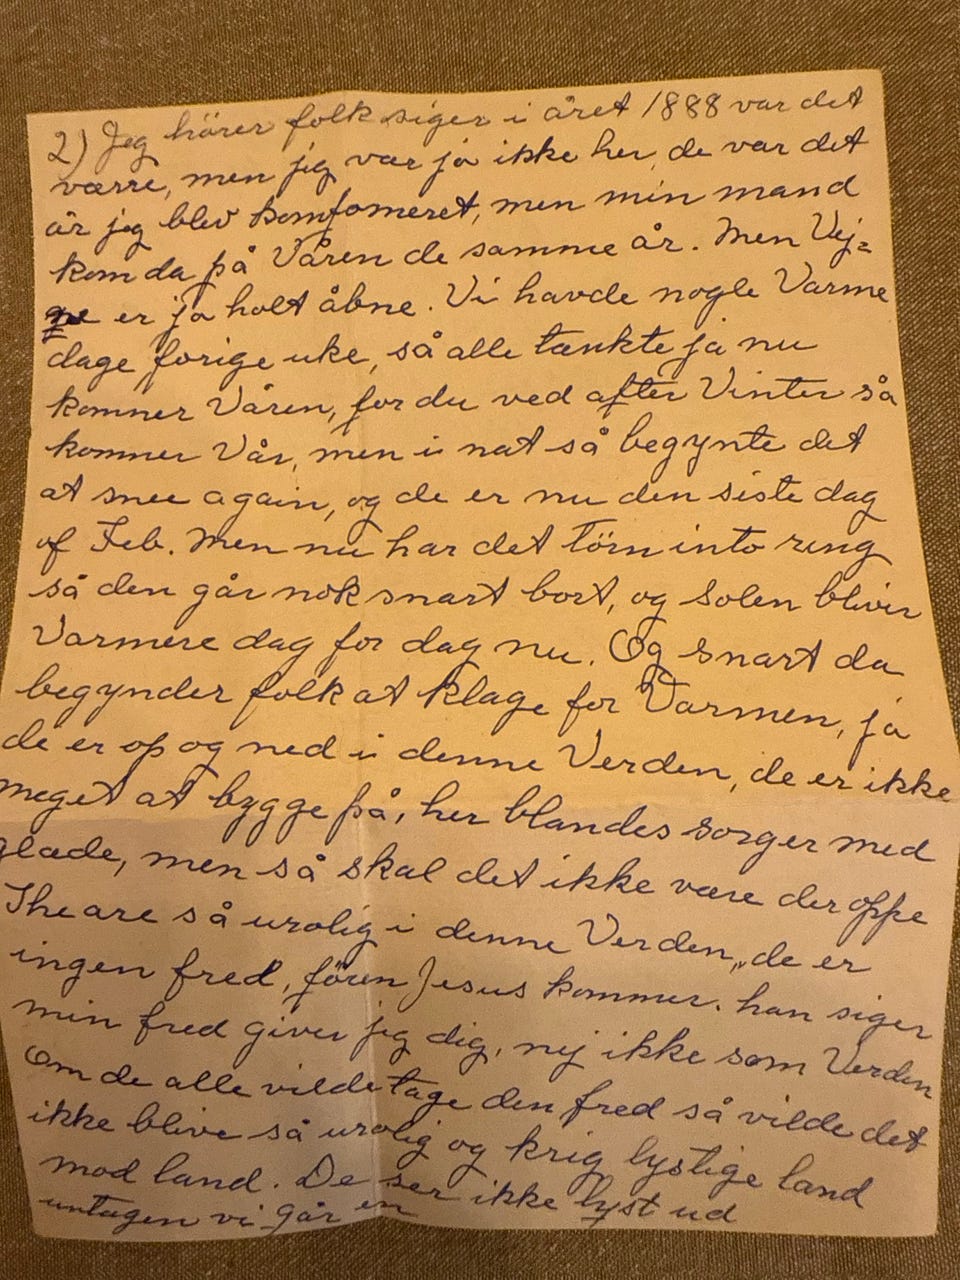 2) Jeg hörer folk siger i året 1888 var det
værre, men jig var jo ikke her, de var det
år jig blev komfomeret, men min mand
kom da på Våren de samme år. Men Vej=
er jo holt åbne. Vi havde nogle Varme
dage forige uke, så alle tænkte ja nu
kommer Våren, for du ved after Vinter så
kommer Vår, men i nat så begynte det
at snee again, og de er nu den siste dag
of Feb. Men nu har det törn into reng
så den går nok snart bort, og Solen blivir
Varmere dag for dag nu. Og snart da
begynder folk at klage for Varmen, ja
de er op og ned i denne Verden, de er ikke
meget at bygge på, her blandes Sorger med
glæde, men så skal det ikke være der oppe
The are så urolig i denne Verden, de er
ingen fred, fören Jesus kommer. han siger
min fred giver jig dig, nej ikke som Verden
Om de alle vilde tage den fred så vilde det
ikke blive så urolig og krig lystige land
mod land. De ser ikke lyst ud
untagen vi går en